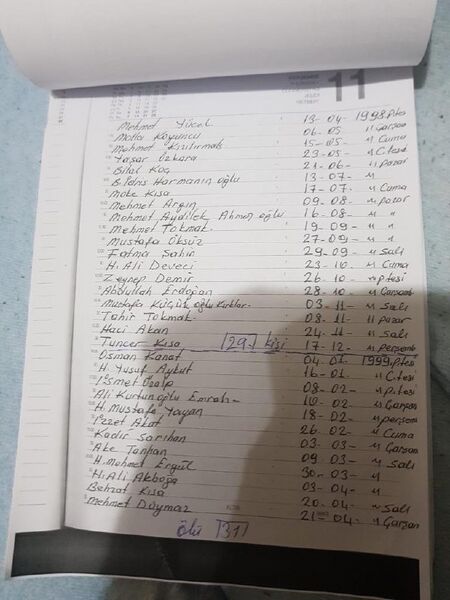 11
Mehmet Yücel 13-04-1998 ptesi
Molla Koyuncu 06-05 " Çarşan
Mehmet Kızılırmak 15-05- " Cuma
Yaşar Özkara 23-05- " C.tesi
Bilal Koç 21-06 " pazar
B.İdris Harmanın oğlu 13-07- "
Moke Kısa 17-07- " Cuma
Mehmet Argın 09-08- " pazar
Mehmet Aydilek Ahmet oğlu 16-08- " "
Mehmet Tokmak 19-09- " "
Mustafa Öksüz 27-09- " "
Fatma Şahin 29-09 " Salı
H. Ali Deveci 23-10- " Cuma
Zeynep Demir 26-10- " ptesi
Abdullah Erdoğan 28-10 " Çarşamb
Mustafa Küçük oğlu Kırklar 03-11- " Salı
Tahir Tokmak 08-11- " pazar
Hacı Akan 24-11- " Salı
Tuncer Kısa 1297 kişi 17-12- " perşemb
Osman Kanat 04 01 1999 ptesi
H. Yusuf Aykut 16-01- " C.tesi
İsmet Özalp 08-02- " p.tesi
Ali Kurtunoğlu Emrah- 10-02- " Çarşan
H. Mustafa Yayan 18-02- " perşem
İzzet Akat 26 02 " Cuma
Kadir Sarıhan 03-03- " Çarşan
Abe Tanhan 09 03- " Salı
H. Mehmet Ergül 30-03- "
H. Ali Akboğa 03-04- "
Behzat Kısa 20-04- " Salı
Mehmet Duymaz 21-04- " Çarşan
ölü 31